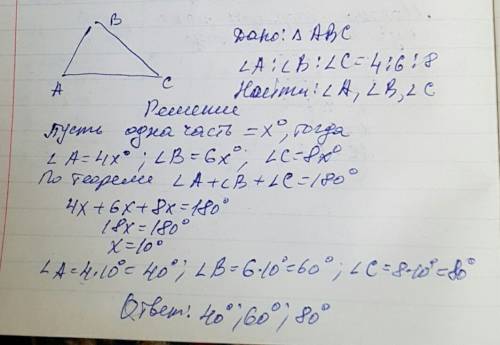 B
A C
Дано: △ ABC
∠A:∠B:∠C=4:6:8
Найти: ∠A, ∠B, ∠C
Решение
Пусть одна часть = x°, тогда
∠A=4x°; ∠B=6x°; ∠C=8x°
По теореме ∠A+∠B+∠C=180°
4x+6x+8x=180°
18x=180°
x=10°
∠A=4·10°=40°; ∠B=6·10°=60°; ∠C=8·10°=80°
Ответ: 40°; 60°; 80°